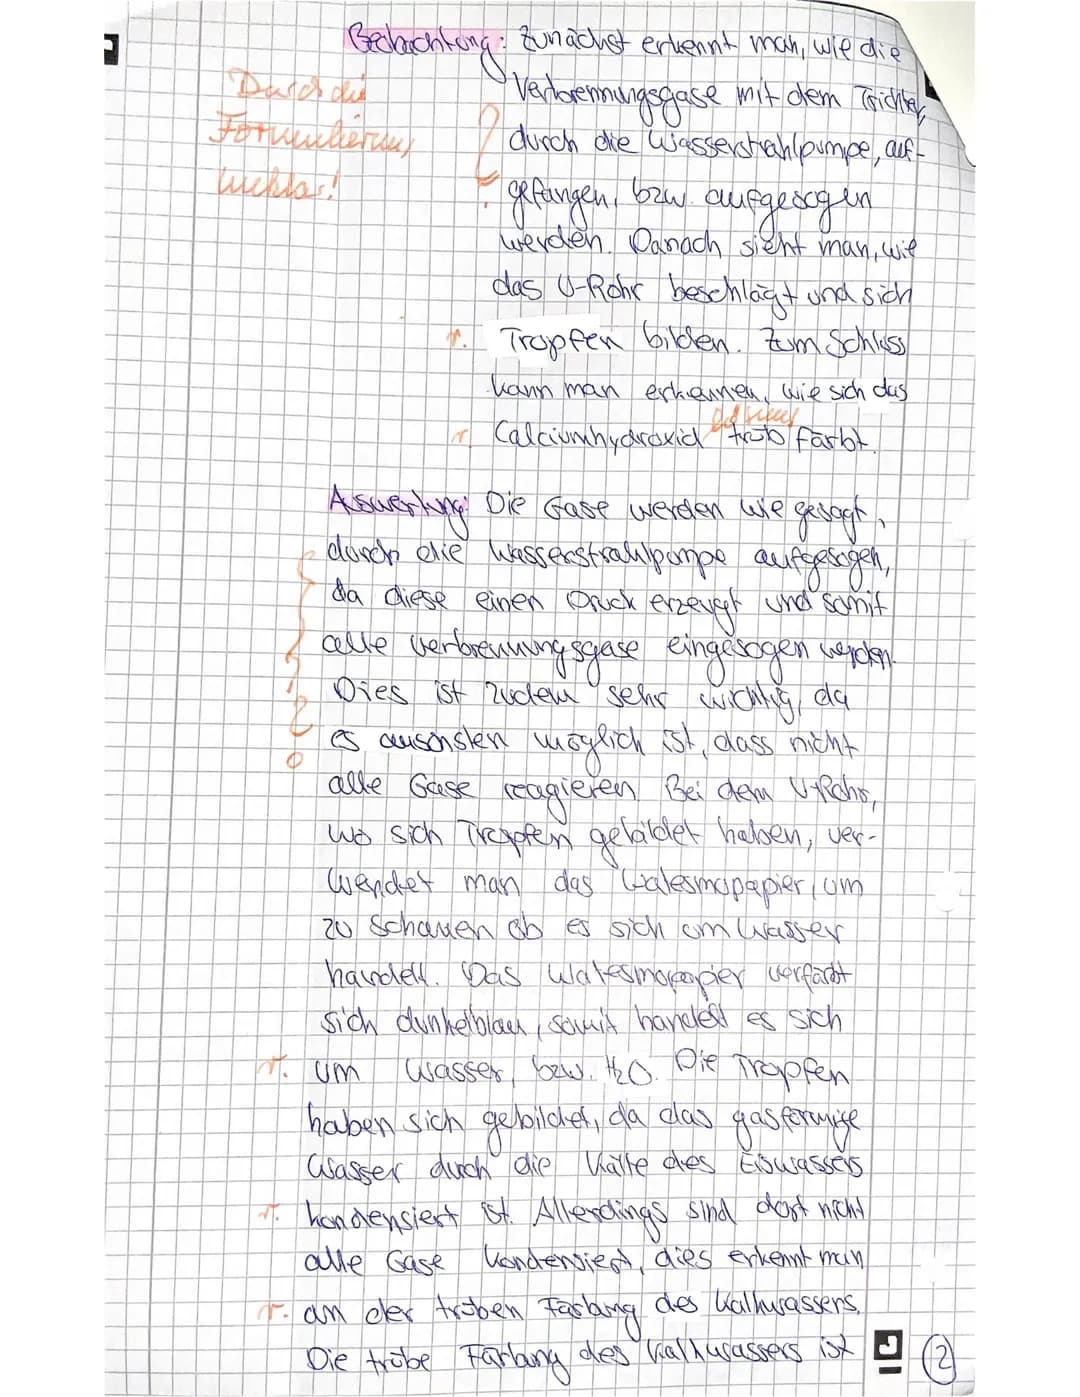 Beobachtung: Zunächst erkennt man, wie die
Verbrennungsgase mit dem Trichter,
durch die Wasserstrahlpumpe, auf-
gefangen, bzw. aufgesogen
werden. Danach sieht man, wie
das U-Rohr beschlägt und sich
Tropfen bilden. Zum Schluss
kann man erkennen, wie sich das
Calciumhydroxid trüb färbt.
Durch die
Formulierung
unklar!
?
r.
r.
Auswertung: Die Gase werden wie gesagt,
durch die Wasserstrahlpumpe aufgesogen,
da diese einen Druck erzeugt und somit
alle Verbrennungsgase eingesogen werden.
Dies ist zudem sehr wichtig, da
es ausonsten möglich ist, dass nicht
alle Gase reagieren. Bei dem U-Rohr,
wo sich Tropfen gebildet haben, ver-
wendet man das Watesmopapier, um
zu schauen ob es sich um Wasser
handelt. Das Watesmopapier verfärbt
sich dunkelblau, somit handelt es sich
r. um Wasser, bzw. H2O. Die Tropfen
haben sich gebildet, da das gasförmige
Wasser durch die Kälte des Eiswassers
r. kondensiert ist. Allerdings sind dort nicht
alle Gase kondensiert, dies erkennt man
r. an der trüben Färbung des Kalkwassers.
Die trübe Färbung des Kalkwassers ist
?
2